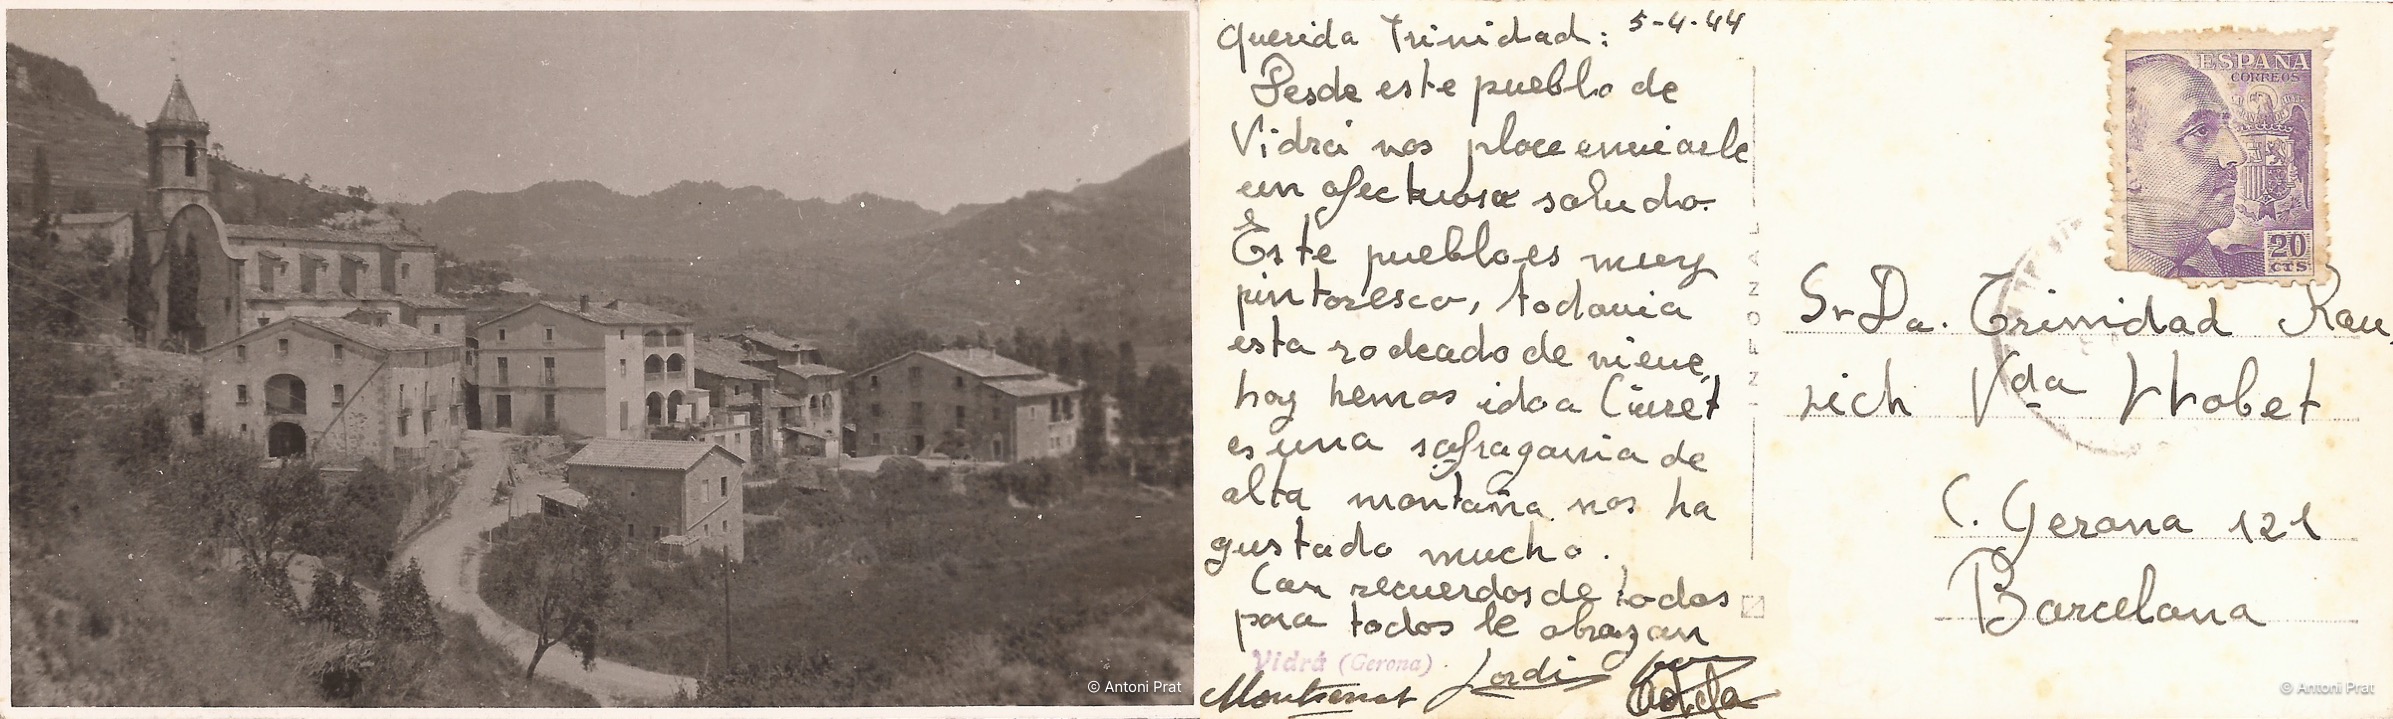 © Antoni Prat
Querida Trinidad: 5-4-44
Desde este pueblo de
Vidrá nos place enviarle
un afectuoso saludo.
Este pueblo es muy
pintoresco, todavia
esta rodeado de nieve,
hoy hemos ido a Ciuret
es una sofragania de
alta montaña nos ha
gustado mucho.
Con recuerdos de todos
para todos le abrazan
Vidrá (Gerona)
Montserrat Jordi
Adela
ESPAÑA
CORREOS
20
CTS
Sr Da. Trinidad Rau
rich Vda Llobet
C. Gerona 121
Barcelona
© Antoni Prat